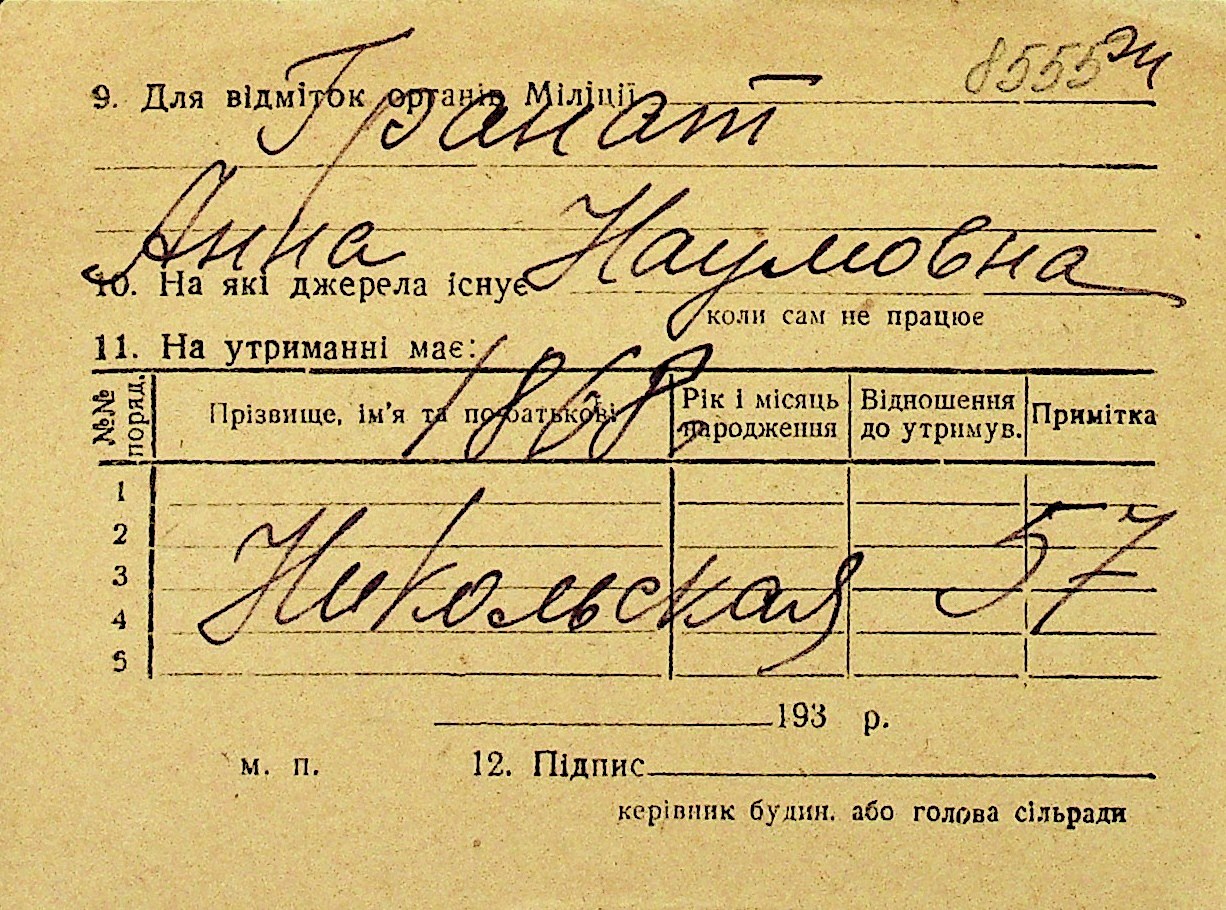 8555 эи
9. Для відміток органів Міліції
Гранат
Анна Наумовна
10. На які джерела існує
коли сам не працює
11. На утриманні має:
1868
№№ поряд.
Прізвище, ім'я та по батькові
Рік і місяць народження
Відношення до утримув.
Примітка
1
2
3
4
5
Никольская 57
193 р.
м. п.
12. Підпис
керівник будин. або голова сільради